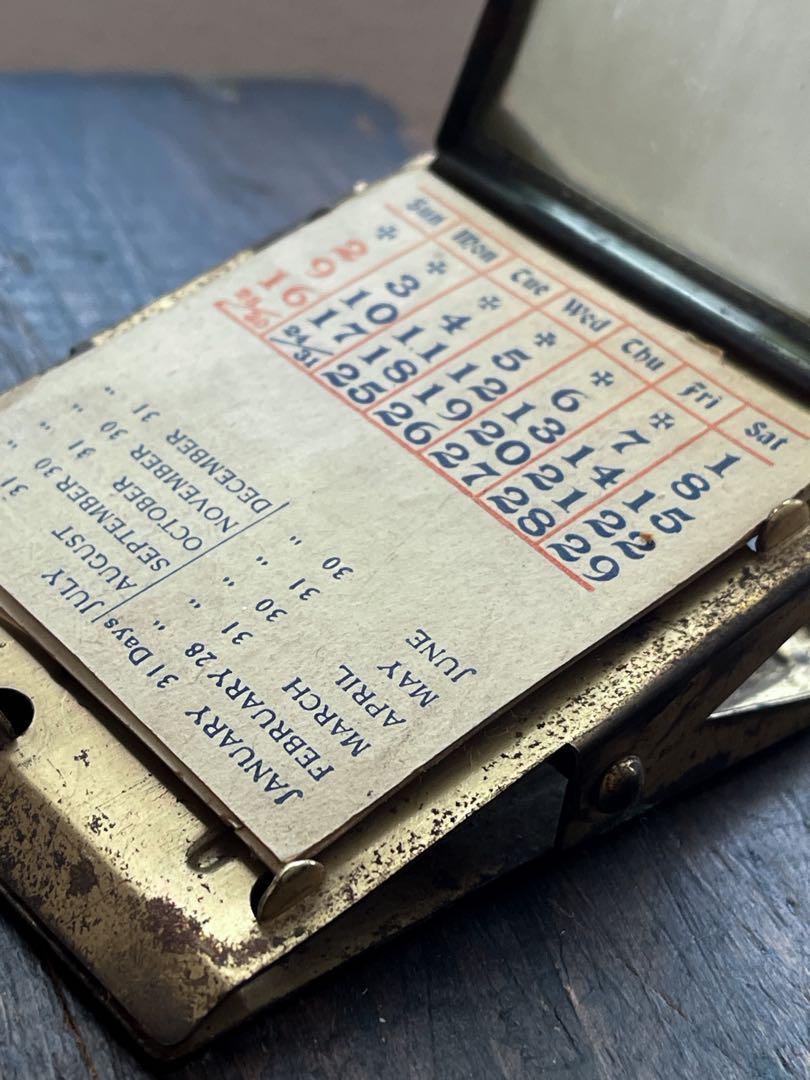 Sun Mon Tue Wed Thu Fri Sat
✠ ✠ ✠ ✠ ✠ ✠ 1
2 3 4 5 6 7 8
9 10 11 12 13 14 15
16 17 18 19 20 21 22
23/30 24/31 25 26 27 28 29
JANUARY 31 Days JULY
FEBRUARY 28 " AUGUST 31
MARCH 31 " SEPTEMBER 30 "
APRIL 30 " OCTOBER 31 "
MAY 31 " NOVEMBER 30 "
JUNE 30 " DECEMBER 31 "